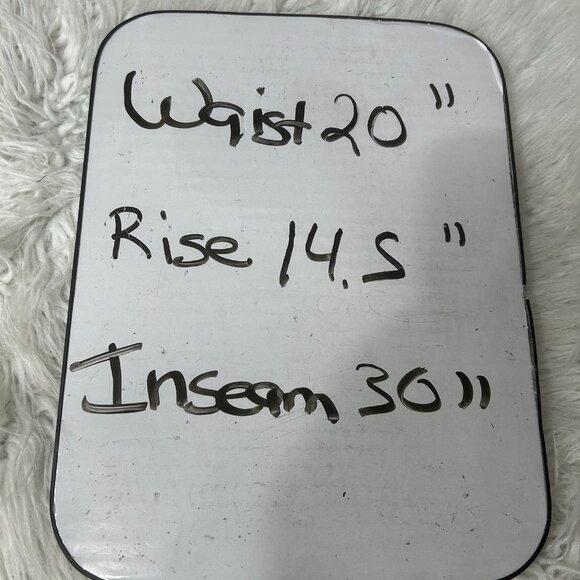 Waist 20 "
Rise 14.5 "
Inseam 30 "